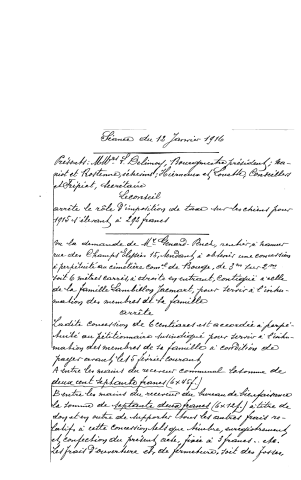 Séance du 12 Janvier 1916
Présents: MM. F. Delimoy, Bourgmestre président;
et Rostenne, échevins; Hiernaux et Louette, Conseillers
et Tripiat, Secrétaire
Le conseil
arrête le rôle d'imposition de taxe sur les chiens pour
1915 s'élevant à 292 francs
Vu la demande de Mr Genard Puch, rentier, à Namur
rue des Champs Elysées 15, tendant à obtenir une concession
à perpétuité au cimetière comal de Bouge, de 3m sur 2m
soit 6 mètres carrés, à droite en entrant, contiguë à celle
de la famille Lambillon Jacmart, pour servir à l'inhu-
mation des membres de sa famille
arrête
La dite concession de 6 centiares est accordée à perpé-
tuité au pétitionnaire susindiqué pour servir à l'inhu-
mation des membres de sa famille à condition de
payer avant le 5 février courant
A entre les mains du receveur communal la somme de
deux cent septante francs (6 x 45 f.)
B entre les mains du receveur du bureau de bienfaisance
la somme de septante deux francs (6 x 12 f.) à titre de
don, et en outre de supporter tous les autres frais re-
latifs à cette concession, tels que timbre, enregistrement
et confection du présent acte, fixés à 3 francs .. etc.
Les frais d'ouverture et de fermeture, soit des fosses,